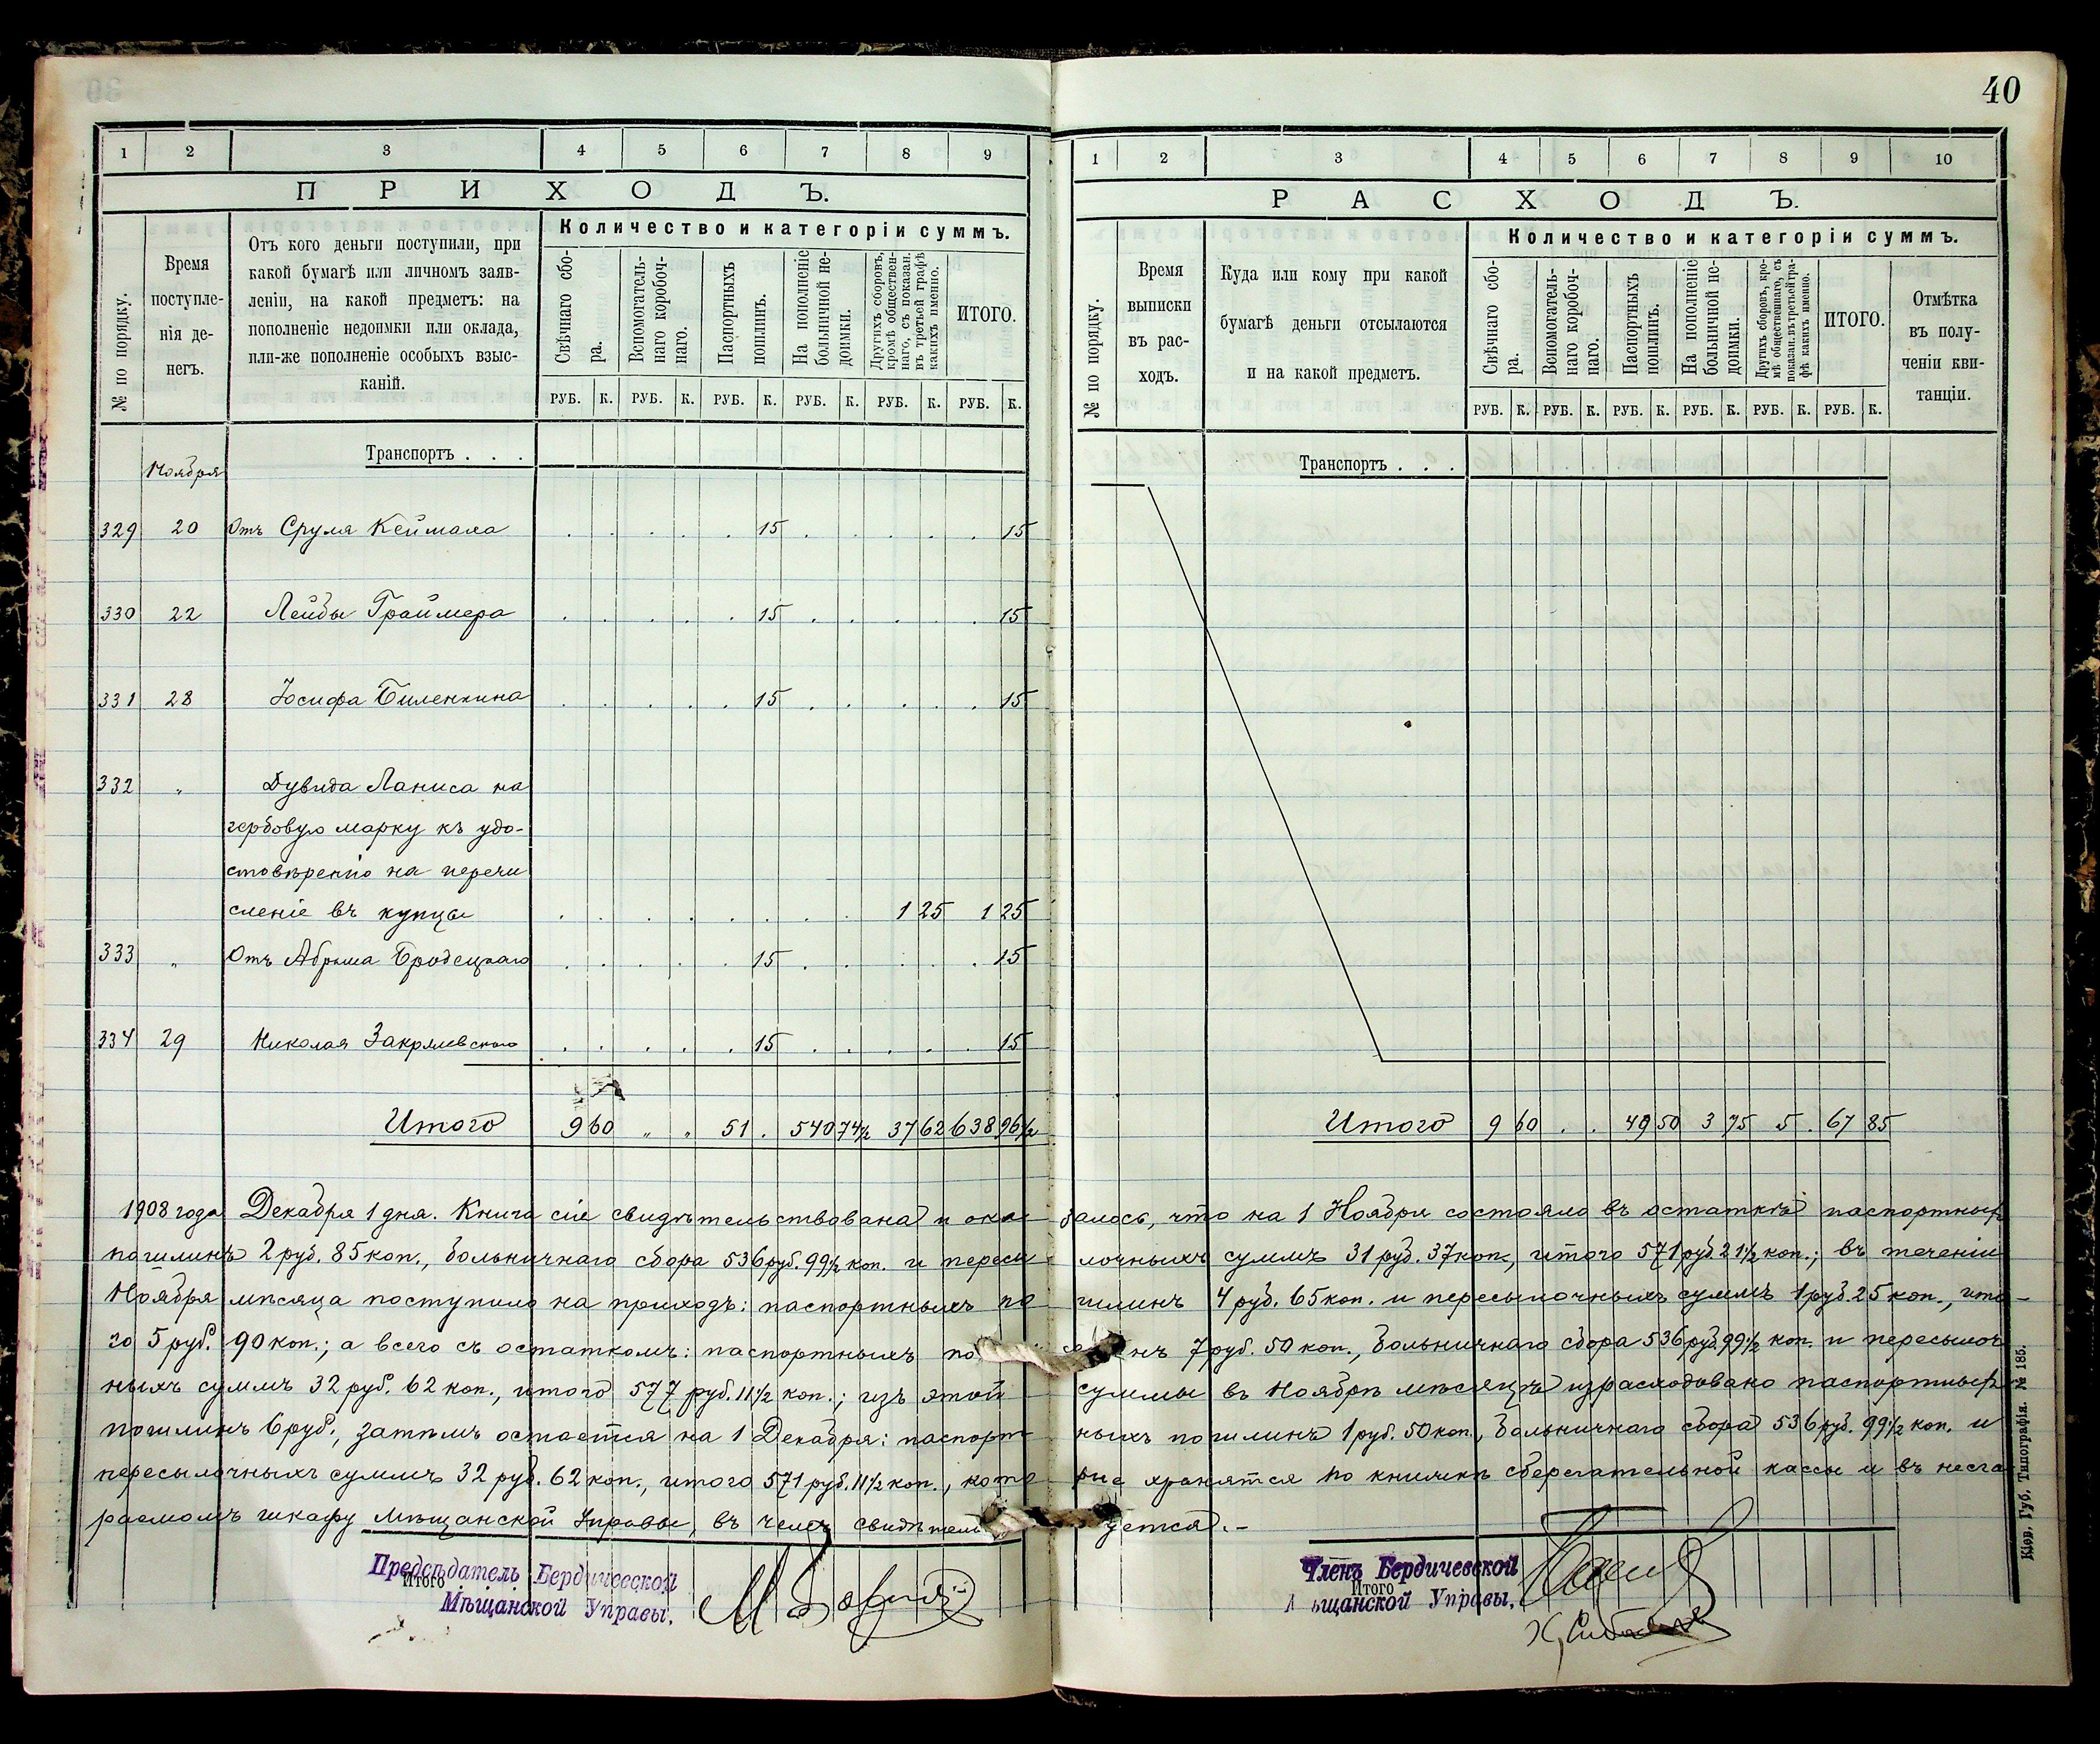 40
1 2 3 4 5 6 7 8 9
ПРИХОДЪ.
№ по порядку.
Время поступле-нія де-негъ.
Отъ кого деньги поступили, при
какой бумагѣ или личномъ заяв-
леніи, на какой предметъ: на
пополненіе недоимки или оклада,
или-же пополненіе особыхъ взыс-
каній.
Количество и категоріи суммъ.
Свѣчнаго сбо-
ра.
Вспомогатель-
наго коробоч-
наго.
Паспортныхъ
пошлинъ.
На пополненіе
больничной не-
доимки.
Другихъ сборовъ,
кромѣ обществен-
наго, съ показан.
въ третьей графѣ
какихъ именно.
ИТОГО.
РУБ. К. РУБ. К. РУБ. К. РУБ. К. РУБ. К. РУБ. К.
Транспортъ . . .
Ноября
329 20 Отъ Сруля Кеймаха 15 15
330 22 Лейбы Граймера 15 15
331 28 Іосифа Биленкина 15 15
332 „ Дувида Ланиса на
гербовую марку къ удо-
стовѣренію на перечи
сленіе въ купцы 1 25 1 25
333 „ Отъ Абрама Бродецкаго 15 15
334 29 Николая Закржевскаго 15 15
Итого 9 60 „ „ 51 . 540 74½ 37 62 638 96½
1 2 3 4 5 6 7 8 9 10
РАСХОДЪ.
№ по порядку.
Время
выписки
въ рас-
ходъ.
Куда или кому при какой
бумагѣ деньги отсылаются
и на какой предметъ.
Количество и категоріи суммъ.
Свѣчнаго сбо-
ра.
Вспомогатель-
наго коробоч-
наго.
Паспортныхъ
пошлинъ.
На пополненіе
больничной не-
доимки.
Другихъ сборовъ, кро-
мѣ общественнаго, съ
показан. въ третьей гра-
фѣ какихъ именно.
ИТОГО.
Отмѣтка
въ полу-
ченіи кви-
танціи.
РУБ. К. РУБ. К. РУБ. К. РУБ. К. РУБ. К. РУБ. К.
Транспортъ . . .
Итого 9 60 . . 49 50 3 75 5 . 67 85
1908 года Декабря 1 дня. Книга сія свидѣтельствована и ока залось, что на 1 Ноября состояло въ остаткѣ паспортныхъ
пошлинъ 2 руб. 85 коп., больничнаго сбора 536 руб. 99½ коп. и пересы лочныхъ суммъ 31 руб. 37 коп., итого 571 руб. 21½ коп.; въ теченіи
Ноября мѣсяца поступило на приходъ: паспортныхъ по шлинъ 4 руб. 65 коп. и пересылочныхъ суммъ 1 руб. 25 коп., ито-
го 5 руб. 90 коп.; а всего съ остаткомъ: паспортныхъ по нъ 7 руб. 50 коп., больничнаго сбора 536 руб. 99½ коп. и пересылоч
ныхъ суммъ 32 руб. 62 коп., итого 577 руб. 11½ коп.; изъ этой суммы въ Ноябрѣ мѣсяцѣ израсходовано паспортныхъ
пошлинъ 6 руб., затѣмъ остается на 1 Декабря: паспорт ныхъ пошлинъ 1 руб. 50 коп., больничнаго сбора 536 руб. 99½ коп. и
пересылочныхъ суммъ 32 руб. 62 коп., итого 571 руб. 11½ коп., кото рые хранятся по книжкѣ сберегательной кассы и въ несга
раемомъ шкафу Мѣщанской Управы, въ чемъ свидѣтель уется.-
Предсѣдатель Бердичевской
Итого
Мѣщанской Управы,
Членъ Бердичевской
Итого
ѣщанской Управы,
Кіев. Губ. Типографія. № 185.